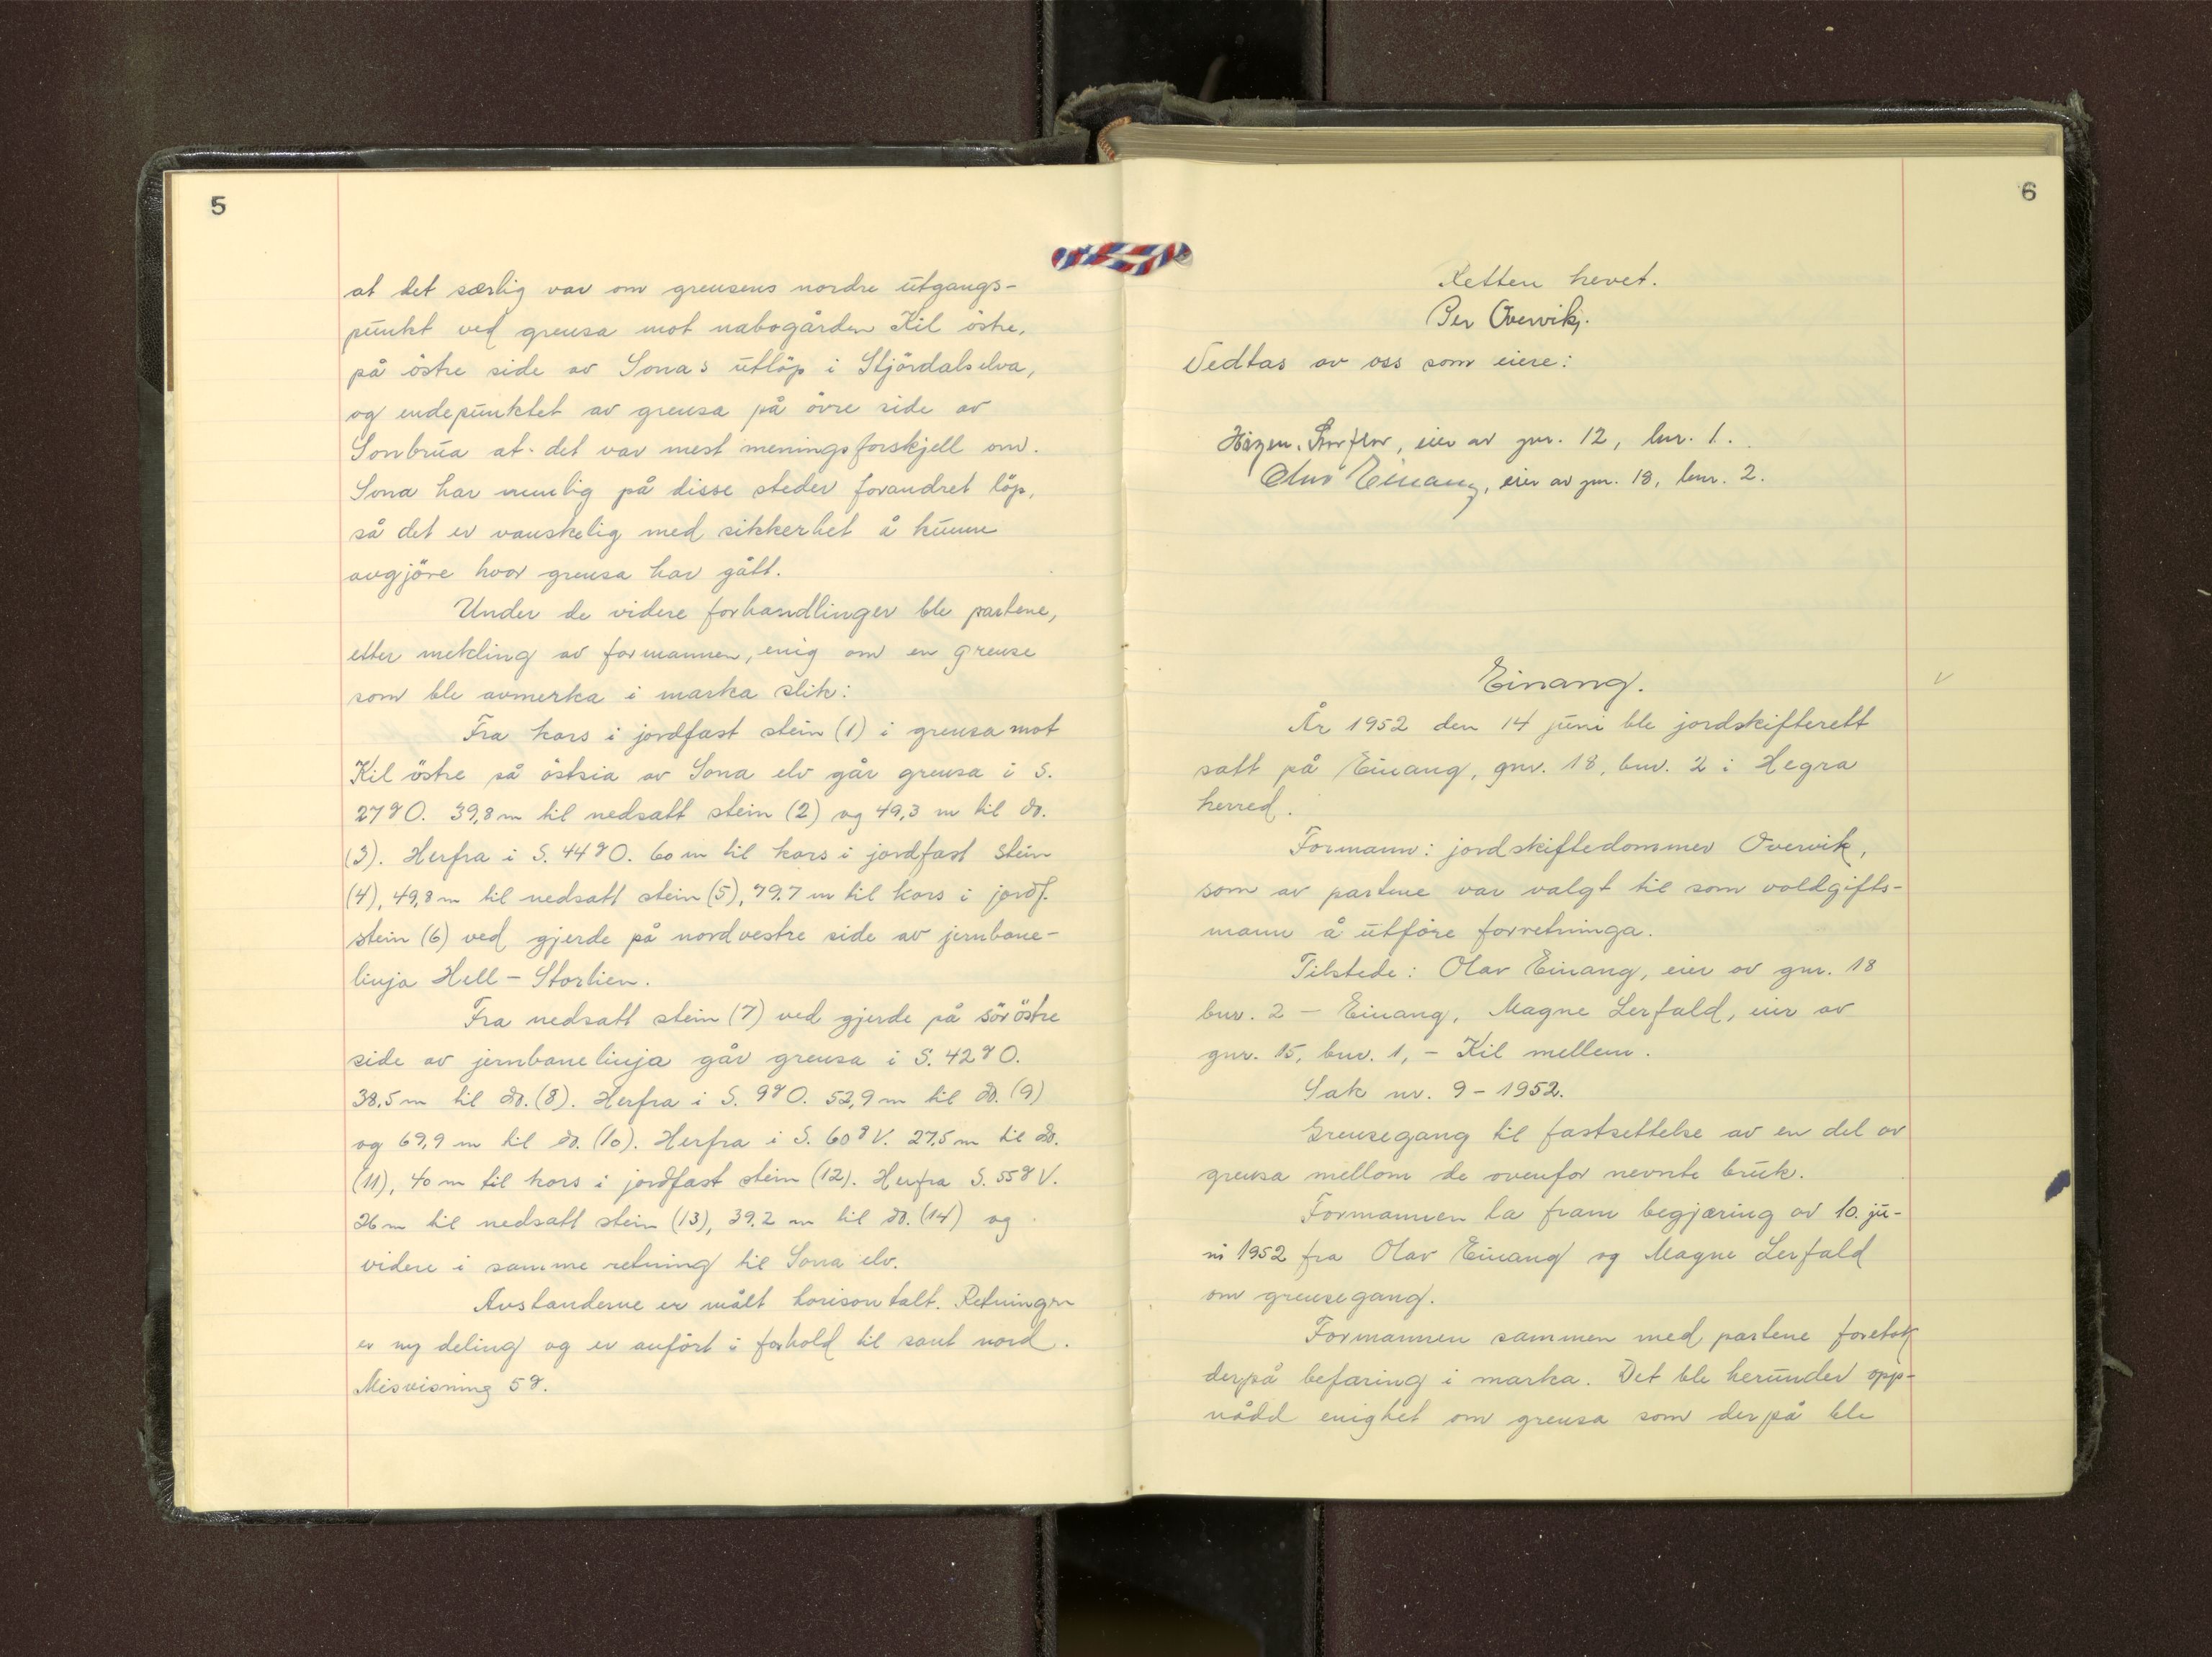 5
at det særlig var om grensens nordre utgangs-
punkt ved grensa mot nabogården Kil östre,
på östre side av Sona's utlöp i Stjördalselva,
og endepunktet av grensa på övre side av
Sonbrua at det var mest meningsforskjell om.
Sona har nemlig på disse steder forandret löp,
så det er vanskelig med sikkerhet å kunne
avgjöre hvor grensa har gått.
Under de videre forhandlinger ble partene,
etter mekling av formannen, enig om en grense
som ble avmerka i marka slik:
Fra kors i jordfast stein (1) i grensa mot
Kil östre på östsia av Sona elv går grensa i S.
27g O. 39,8 m til nedsatt stein (2) og 49,3 m til do.
(3). Herfra i S. 44g O. 60 m til kors i jordfast stein
(4), 49,8 m til nedsatt stein (5), 79.7 m til kors i jordf.
stein (6) ved gjerde på nordvestre side av jernbane-
linja Hell - Storlien.
Fra nedsatt stein (7) ved gjerde på söröstre
side av jernbanelinja går grensa i S. 42g O.
38,5 m til do. (8). Herfra i S. 9g O. 52,9 m til do. (9)
og 69,9 m til do. (10). Herfra i S. 60g V. 27,5 m til do.
(11), 40 m til kors i jordfast stein (12). Herfra S. 55g V.
26 m til nedsatt stein (13), 39.2 m til do. (14) og
videre i samme retning til Sona elv.
Avstandene er målt horisontalt. Retningen
er ny deling og er anfört i forhold til sant nord.
Misvisning 5g.
6
Retten hevet.
Per Overvik.
Vedtas av oss som eiere:
eier av gnr. 12, bnr. 1.
Olav Einang, eier av gnr. 18, bnr. 2.
Einang.
År 1952 den 14 juni ble jordskifterett
satt på Einang, gnr. 18, bnr. 2 i Hegra
herred.
Formann: jordskiftedommer Overvik,
som av partene var valgt til som voldgifts-
mann å utföre forretninga.
Tilstede: Olav Einang, eier av gnr. 18
bnr. 2 - Einang, Magne Lerfald, eier av
gnr. 15, bnr. 1, - Kil mellem.
Sak nr. 9 - 1952.
Grensegang til fastsettelse av en del av
grensa mellom de ovenfor nevnte bruk.
Formannen la fram begjæring av 10. ju-
ni 1952 fra Olav Einang og Magne Lerfald
om grensegang.
Formannen sammen med partene foretok
derpå befaring i marka. Det ble herunder opp-
nådd enighet om grensa som derpå ble